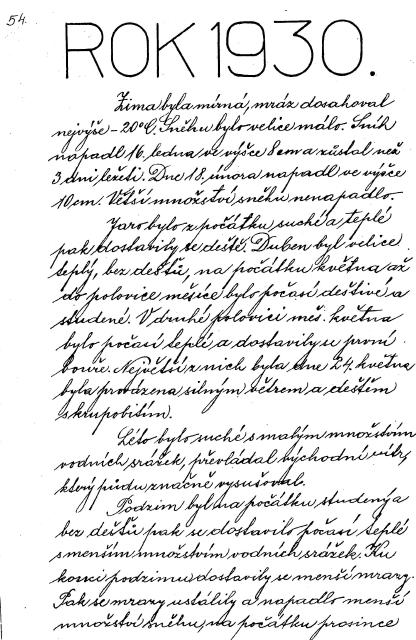 54.
ROK 1930.
Zima byla mírná, mráz dosahoval
nejvýše -20°C. Sněhu bylo velice málo. Sníh
napadl 16. ledna ve výšce 8 cm a zůstal než
3 dni ležeti. Dne 18. února napadl ve výšce
10 cm. Větší množství sněhu nenapadlo.
Jaro bylo z počátku suché a teplé
pak dostavily se deště. Duben byl velice
teplý, bez dešťů, na počátku května až
do polovice měsíce bylo počasí deštivé a
studené. V druhé polovici měs. května
bylo počasí teplé a dostavily se první
bouře. Největší z nich byla dne 24. května
byla provázena silným větrem a deštěm
s krupobitím.
Léto bylo suché s malým množstvím
vodních srážek, převládal východní vítr,
který půdu značně vysušoval.
Podzim byl na počátku studený a
bez dešťů pak se dostavilo počasí teplé
s menším množstvím vodních srážek. Ku
konci podzimu dostavily se menší mrazy.
Pak se mrazy ustálily a napadlo menší
množství sněhu, na počátku prosince